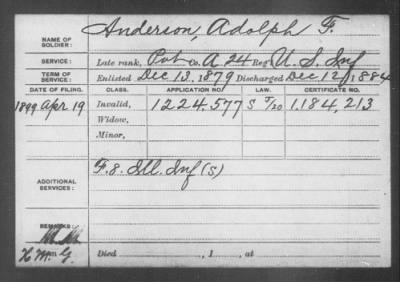 NAME OF SOLDIER: Anderson, Adolph F.
SERVICE: Late rank, Pvt Co. A, 24 Reg U.S. Inf
TERM OF SERVICE: Enlisted Dec 13, 1879 Discharged Dec 12, 1884
DATE OF FILING. CLASS. APPLICATION NO. LAW. CERTIFICATE NO.
1899 Apr 19 Invalid, 1224,577 S 1,184,213
Widow,
Minor,
ADDITIONAL SERVICES: F. 8. Ill. Inf (S)
REMARKS:
Died , 1 , at